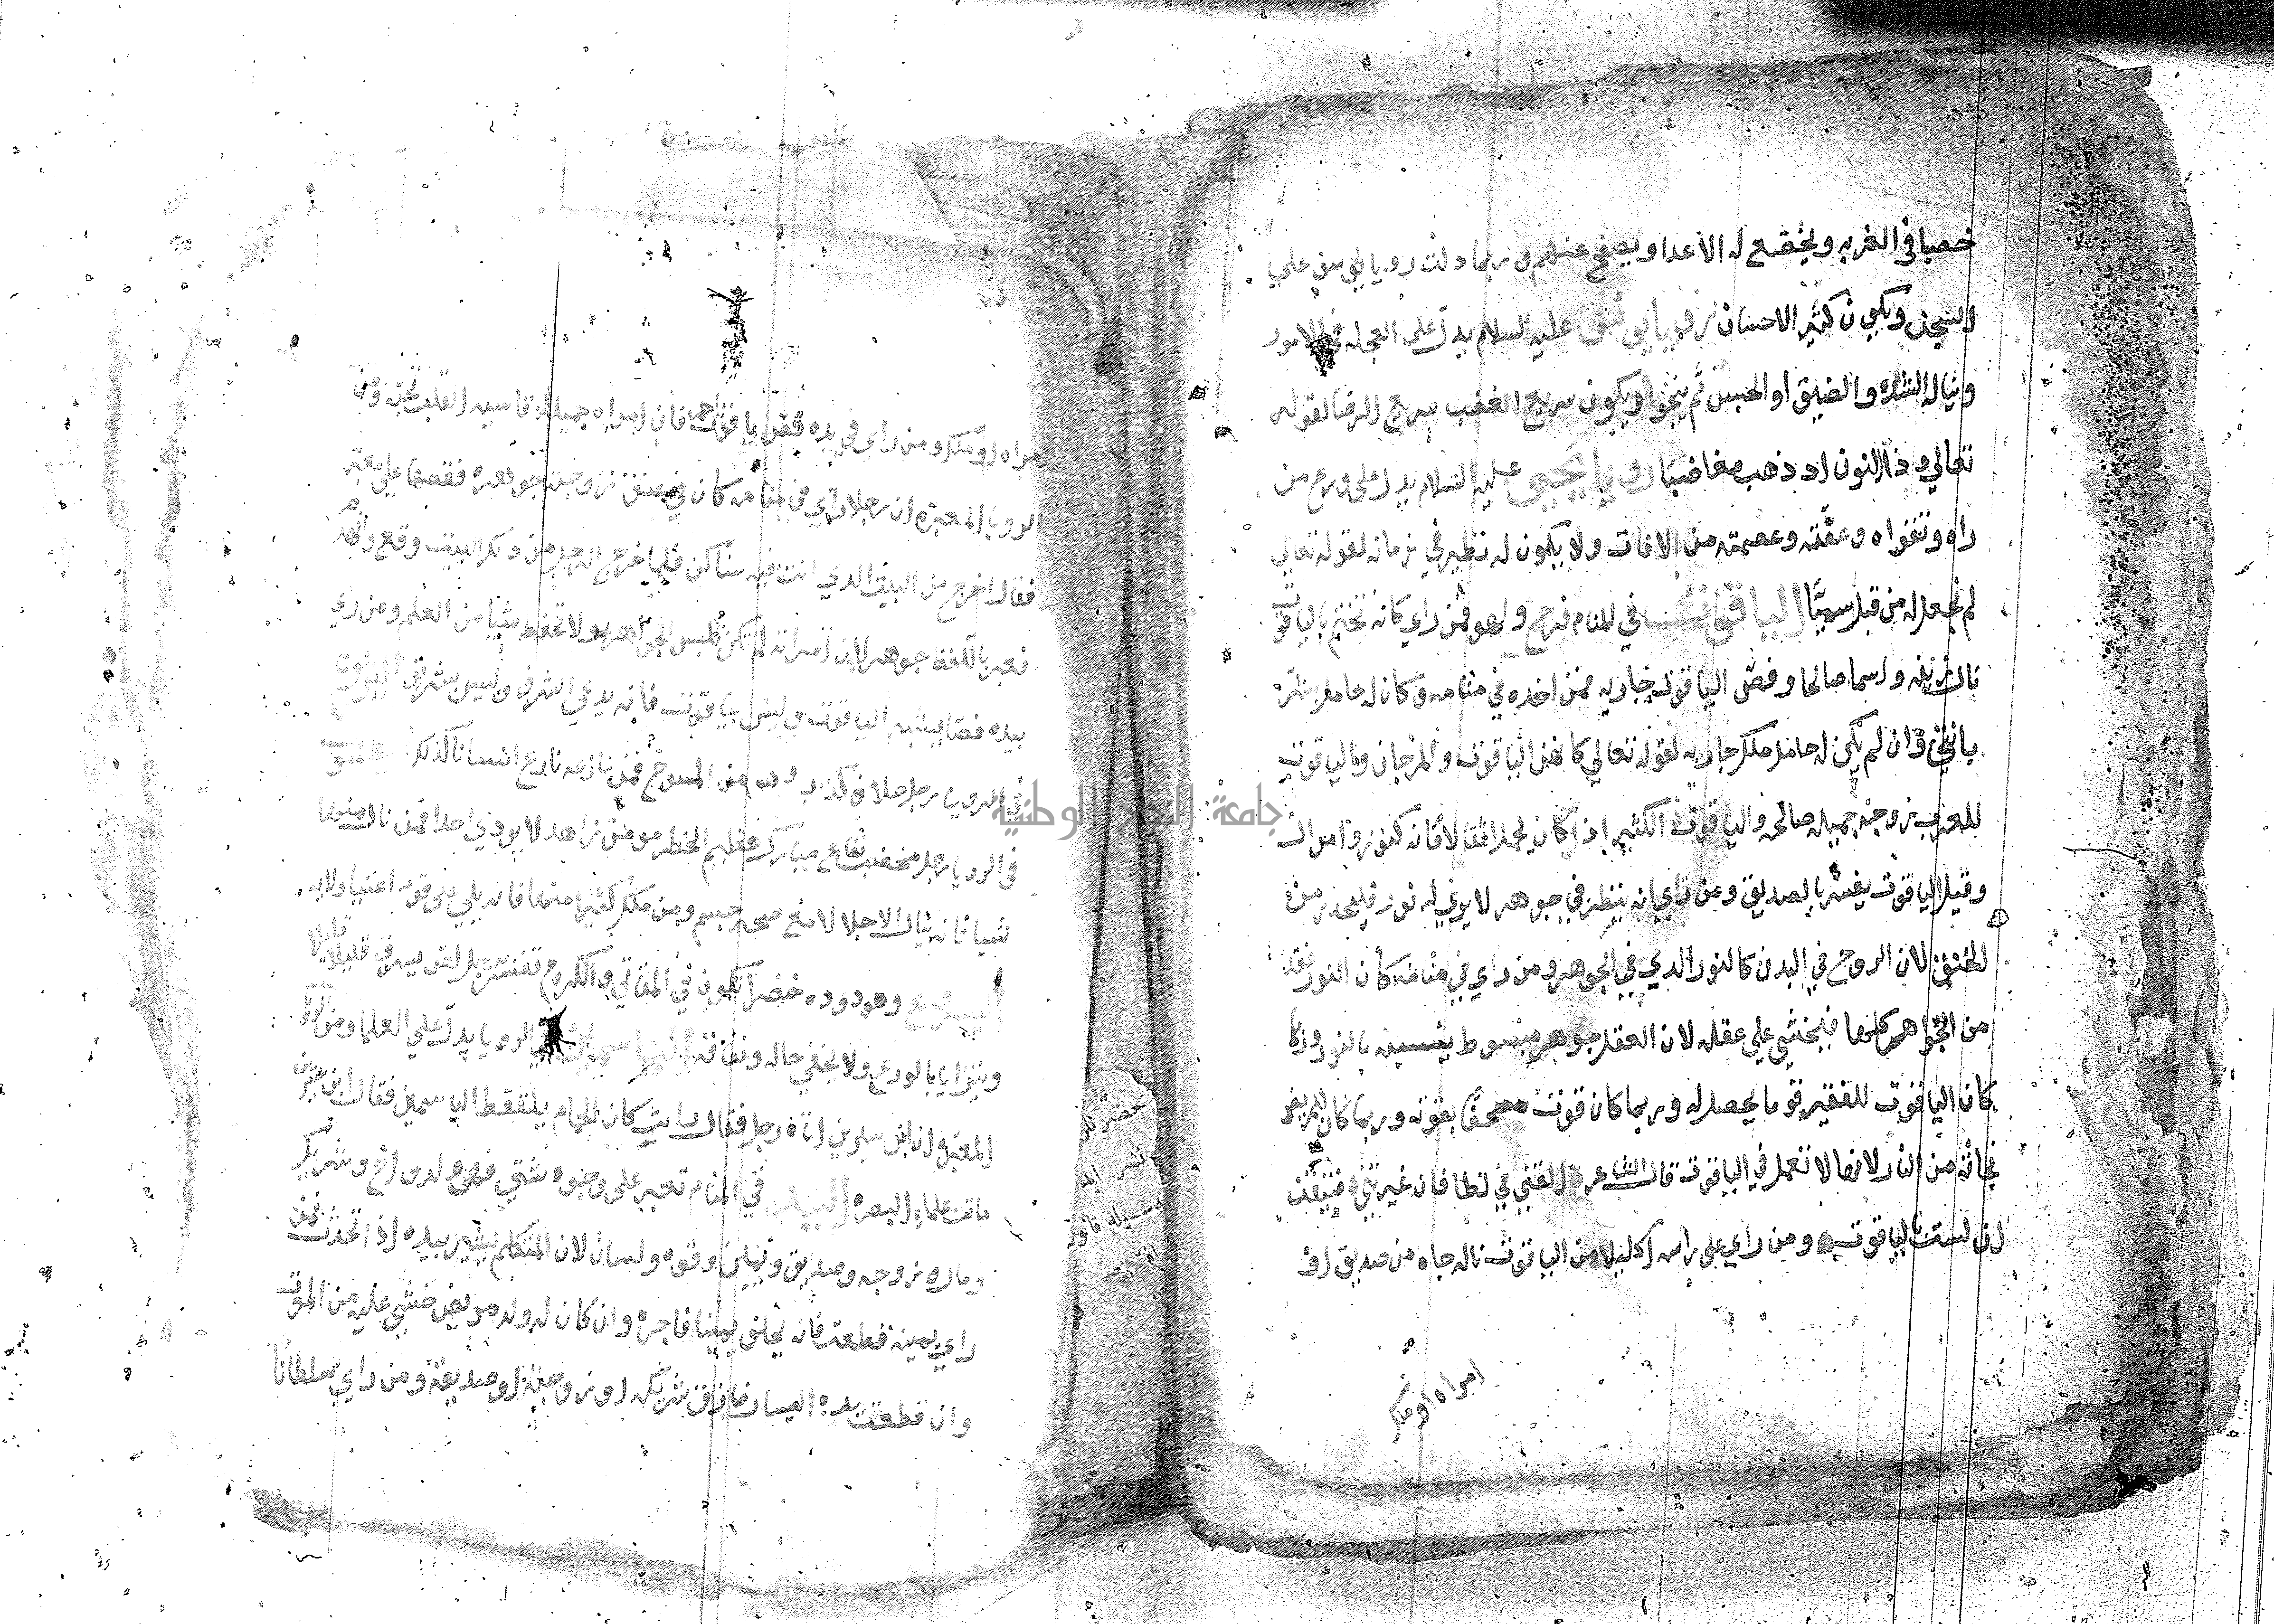 خصبا في الغربه ويخضع له الاعدا ويصفح عنهم وربما دلت رويا يوسف علي
السجن ويكون كثير الاحسان رويا يونس عليه السلام يدل على العجله في الامور
ويناله الشده والضيق او الحبس ثم ينجوا ويكون سريع الغضب سريع الرضا لقوله
تعالي وذا النون اد ذهب مغاضبا رويا يحيي عليه السلام يدل على ورع من
راه وتقواه وعفته وعصمته من الافات ولا يكون له نظير في زمانه لقوله تعالي
لم نجعل له من قبل سميا الياقوت في المنام فرح ولهو فمن راي كانه تختم بالياقوت
نال زينه واسما صالحا وفص الياقوت جاريه فمن اخده في منامه وكان له حامل بشر
بانثي وان لم يكن له حامل ملك جاريه لقوله تعالي كانهن الياقوت والمرجان والياقوت
للعزب زوجه جميله صالحه والياقوت الكثير اذا كان يحمل اثقالا فانه كنوز واموال
وقيل الياقوت يفسر بالصديق ومن راي انه ينظر في جوهر لا يري له نور فليحدر من
الخنق لان الروح في البدن كالنور الدي في الجوهر ومن راي في منامه كان النور فقد
من الجواهر كلها فيخشي علي عقله لان العقل جوهر مبسوط بالنور وربما
كان الياقوت للفقير قوت ما يحصل له وربما كان قوت بقوته وربما كان للمريض
نجاته من النار لانها لا تعمل في الياقوت قال الشاعر القني في لظا فان غيرتني فتيقن
ان لست بالياقوت ومن راي على راسه اكليلا من الياقوت ناله جاه من صديق او
امراه او ملك
امراه او ملك ومن راي في يده فص ياقوت احمر فان امراه جميله قاسيه القلب تحبه ومن
الرويا المعبره ان رجلا راي في منامه كان في عنق زوجته جوهره فقصها علي معبر
فقال اخرج من البيت الدي انت فيه ساكن فلما خرج الرجل من دلك البيت وقع وانهدم
فعبر باللغه جوهر لان امراته لم تكن تلبس الجواهر ولا تحفظ شيا من العلم ومن راي
بيده فصا يشبه الياقوت وليس بياقوت فانه يدعي الشرف وليس بشريف اليربوع
في الرويا رجل حلاف كداب وهو من المسوخ فمن نازعه نازع انسانا كذلك
في الرويا رجل مخصب نفاع مبارك عظيم الخطر مومن زاهد لا يودي احدا فمن نال منها
شيا فانه ينال الاجلال مع صحه جسم ومن ملك كثيرا منها فانه يلي علي قوم اغنيا ولايه
وهو دوده خضرا تكون في المقاتي والكروم تفسر برجل لص يسرق قليلا قليلا
ويتزايا بالورع ولا يخفي حاله ونفاقه الياسمين في الرويا يدل علي العلما ومن الرويا
المعبره ان ابن سيرين اتاه رجل فقال رايت كان الحمام يلتقط الياسمين فقال ابن سيرين
ماتت علماء البصره اليد في المنام تعبر على وجوه شتي فهي ولد واخ وشريك
ومال وزوجه وصديق ويمين وقوه ولسان لان المتكلم يشير بيده اذا تحدث فمن
راي يمينه قطعت فانه يحلف يمينا فاجره وان كان له ولد مريض خشي عليه من الموت
وان قطعت يده اليسار فارق شريكه او زوجته او صديقه ومن راي سلطانا
جامعة النجاح الوطنية